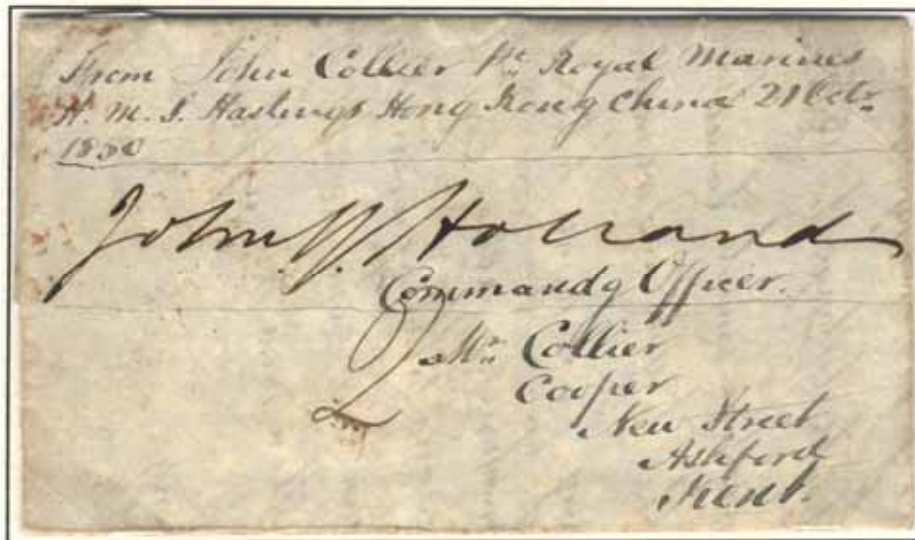 From John Collier Pte Royal Marines
H. M. S. Hastings Hong Kong China 21 Octr
1850
John W. Holland
Commandg Officer.
2
Mr Collier
Cooper
New Street
Ashford
Kent.